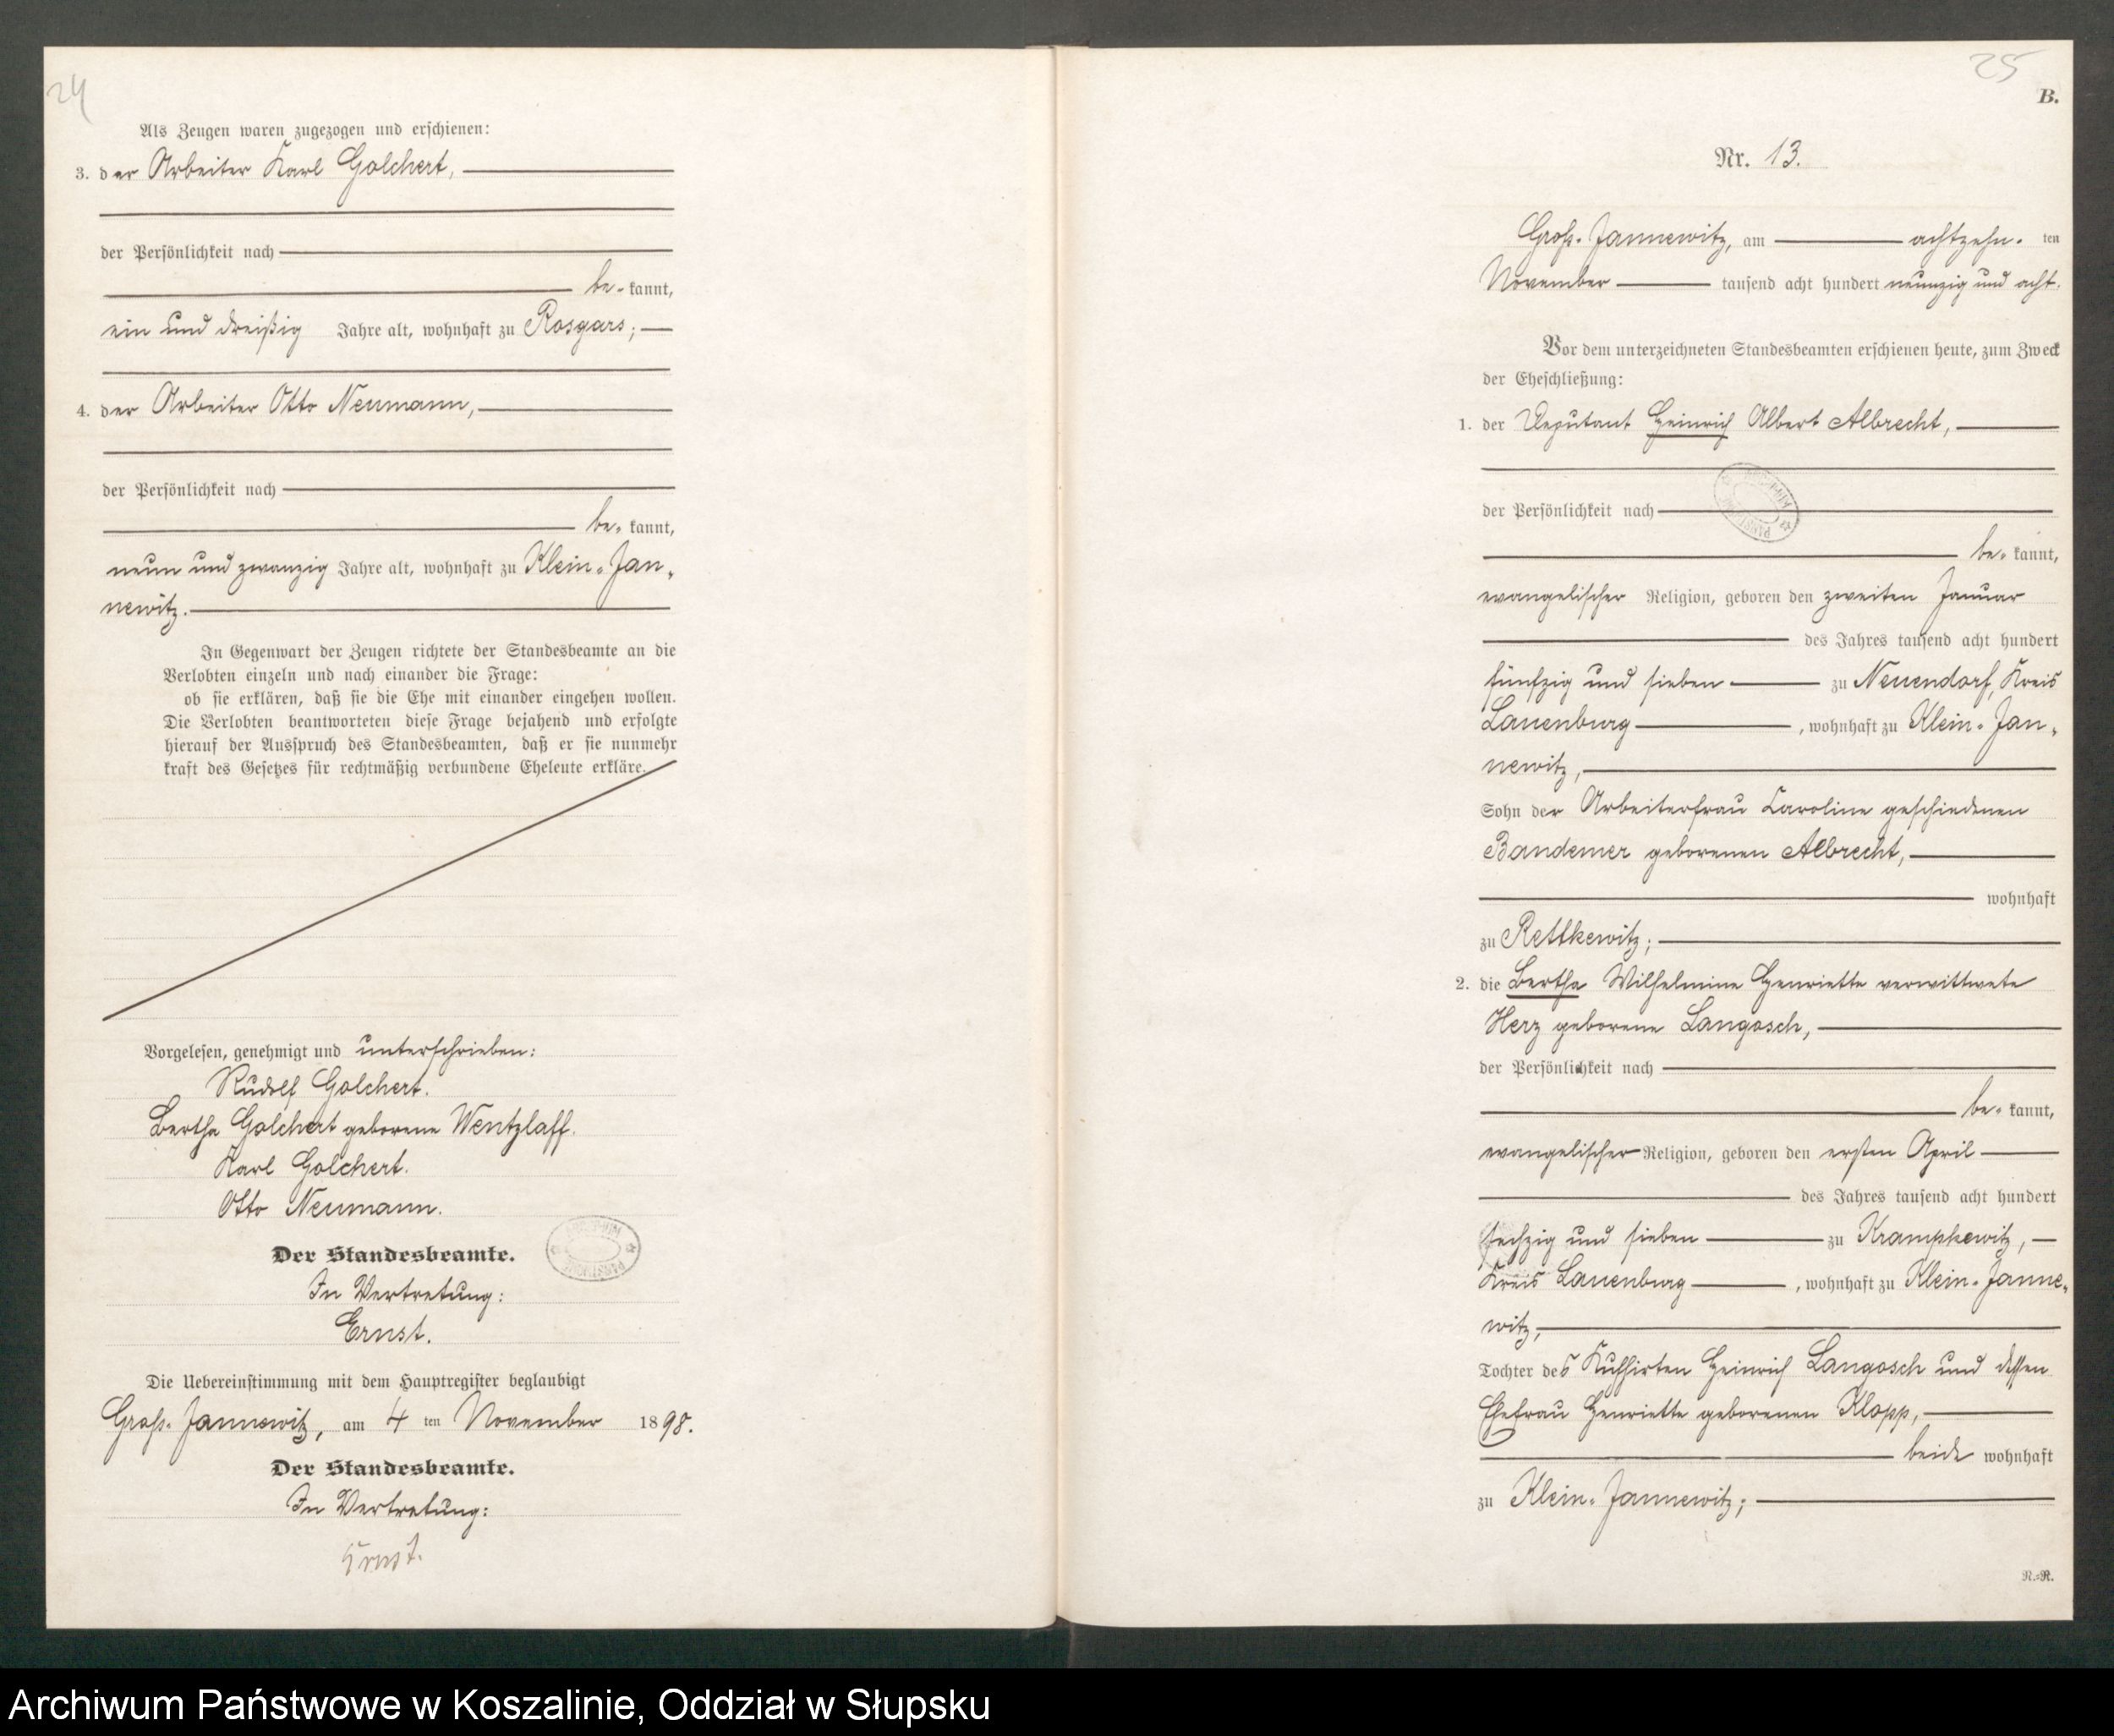 24
Als Zeugen waren zugezogen und erschienen:
3. der Arbeiter Karl Golchert,
der Persönlichkeit nach
be- kannt,
ein und dreißig Jahre alt, wohnhaft zu Rosgars;
4. der Arbeiter Otto Neumann,
der Persönlichkeit nach
be- kannt,
neun und zwanzig Jahre alt, wohnhaft zu Klein-Jan-
newitz.
In Gegenwart der Zeugen richtete der Standesbeamte an die
Verlobten einzeln und nach einander die Frage:
ob sie erklären, daß sie die Ehe mit einander eingehen wollen.
Die Verlobten beantworteten diese Frage bejahend und erfolgte
hierauf der Ausspruch des Standesbeamten, daß er sie nunmehr
kraft des Gesetzes für rechtmäßig verbundene Eheleute erkläre.
Vorgelesen, genehmigt und unterschrieben:
Rudolf Golchert.
Bertha Golchert geborene Wentzlaff.
Karl Golchert.
Otto Neumann.
Der Standesbeamte.
In Vertretung:
Ernst.
Die Uebereinstimmung mit dem Hauptregister beglaubigt
Groß-Jannewitz, am 4 ten November 1898.
Der Standesbeamte.
In Vertretung:
Ernst.
25
B.
Nr. 13.
Groß-Jannewitz, am achtzehn- ten
November tausend acht hundert neunzig und acht.
Vor dem unterzeichneten Standesbeamten erschienen heute, zum Zweck
der Eheschließung:
1. der Deputant Heinrich Albert Albrecht,
der Persönlichkeit nach
be- kannt,
evangelischer Religion, geboren den zweiten Januar
des Jahres tausend acht hundert
fünfzig und sieben zu Neuendorf, Kreis
Lauenburg, wohnhaft zu Klein-Jan-
newitz,
Sohn der Arbeiterfrau Karoline geschiedenen
Bandemer geborenen Albrecht,
wohnhaft
zu Rettkewitz;
2. die Bertha Wilhelmine Henriette verwittwete
Herz geborene Langosch,
der Persönlichkeit nach
be- kannt,
evangelischer Religion, geboren den ersten April
des Jahres tausend acht hundert
sechzig und sieben zu Krampkewitz,
Kreis Lauenburg, wohnhaft zu Klein-Janne-
witz,
Tochter des Kuhhirten Heinrich Langosch und dessen
Ehefrau Henriette geborenen Klopp,
beide wohnhaft
zu Klein-Jannewitz;
R.-R.
Archiwum Państwowe w Koszalinie, Oddział w Słupsku